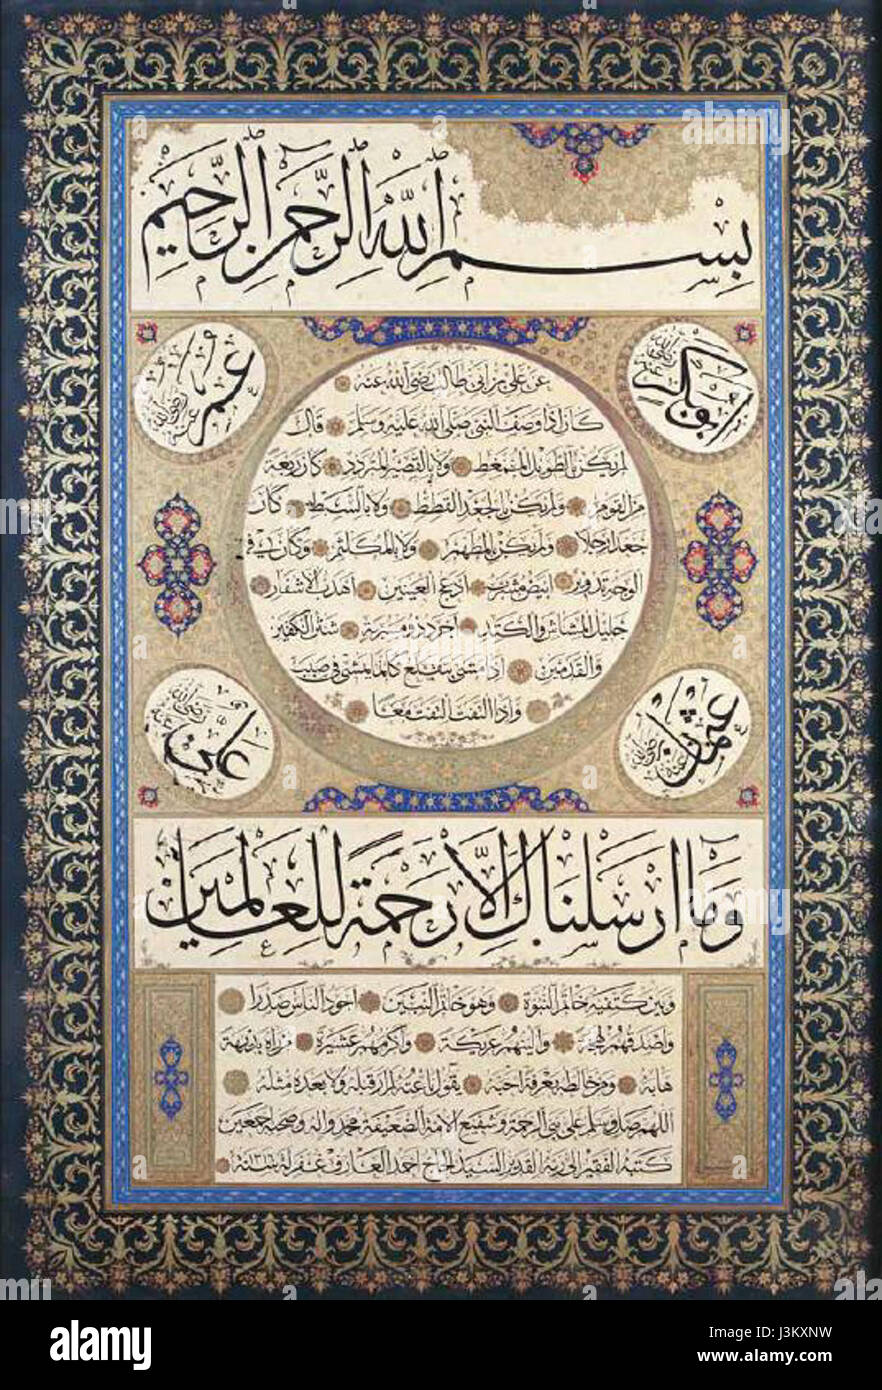 بسم الله الرحمن الرحيم
ابو بكر رضي الله عنه
عمر رضي الله عنه
عن علي بن ابي طالب رضي الله عنه
كان اذا وصف النبي صلى الله عليه وسلم قال
لم يكن بالطويل الممغط ولا بالقصير المتردد كان ربعة
من القوم ولم يكن بالجعد القطط ولا بالسبط كان
جعدا رجلا ولم يكن بالمطهم ولا بالمكلثم وكان في
الوجه تدوير ابيض مشرب ادعج العينين اهدب الاشفار
جليل المشاش والكتد اجرد ذو مسربة شثن الكفين
والقدمين اذا مشى يتقلع كانما يمشي في صبب
واذا التفت التفت معا
عثمان رضي الله عنه
علي رضي الله عنه
وما ارسلناك الا رحمة للعالمين
وبين كتفيه خاتم النبوة وهو خاتم النبيين اجود الناس صدرا
واصدقهم لهجة والينهم عريكة واكرمهم عشيرة من راه بديهة
هابه ومن خالطه معرفة احبه يقول ناعته لم ار قبله ولا بعده مثله
اللهم صل وسلم على نبي الرحمة وشفيع الامة الضعيفة محمد واله وصحبه اجمعين
كتبه الفقير الى ربه القدير السيد الحاج احمد العارف غفر له سنة ١٣١٦
alamy stock photo
J3KXNW
www.alamy.com